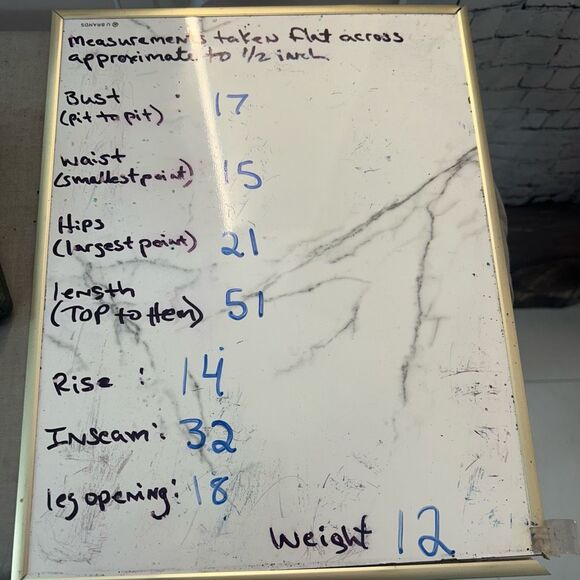 ® U BRANDS
measurements taken flat across
approximate to 1/2 inch
Bust : 17
(pit to pit)
waist
(smallest point) 15
Hips
(largest point) 21
length
(TOP to Hem) 51
Rise : 14
Inseam: 32
leg opening: 18
Weight 12